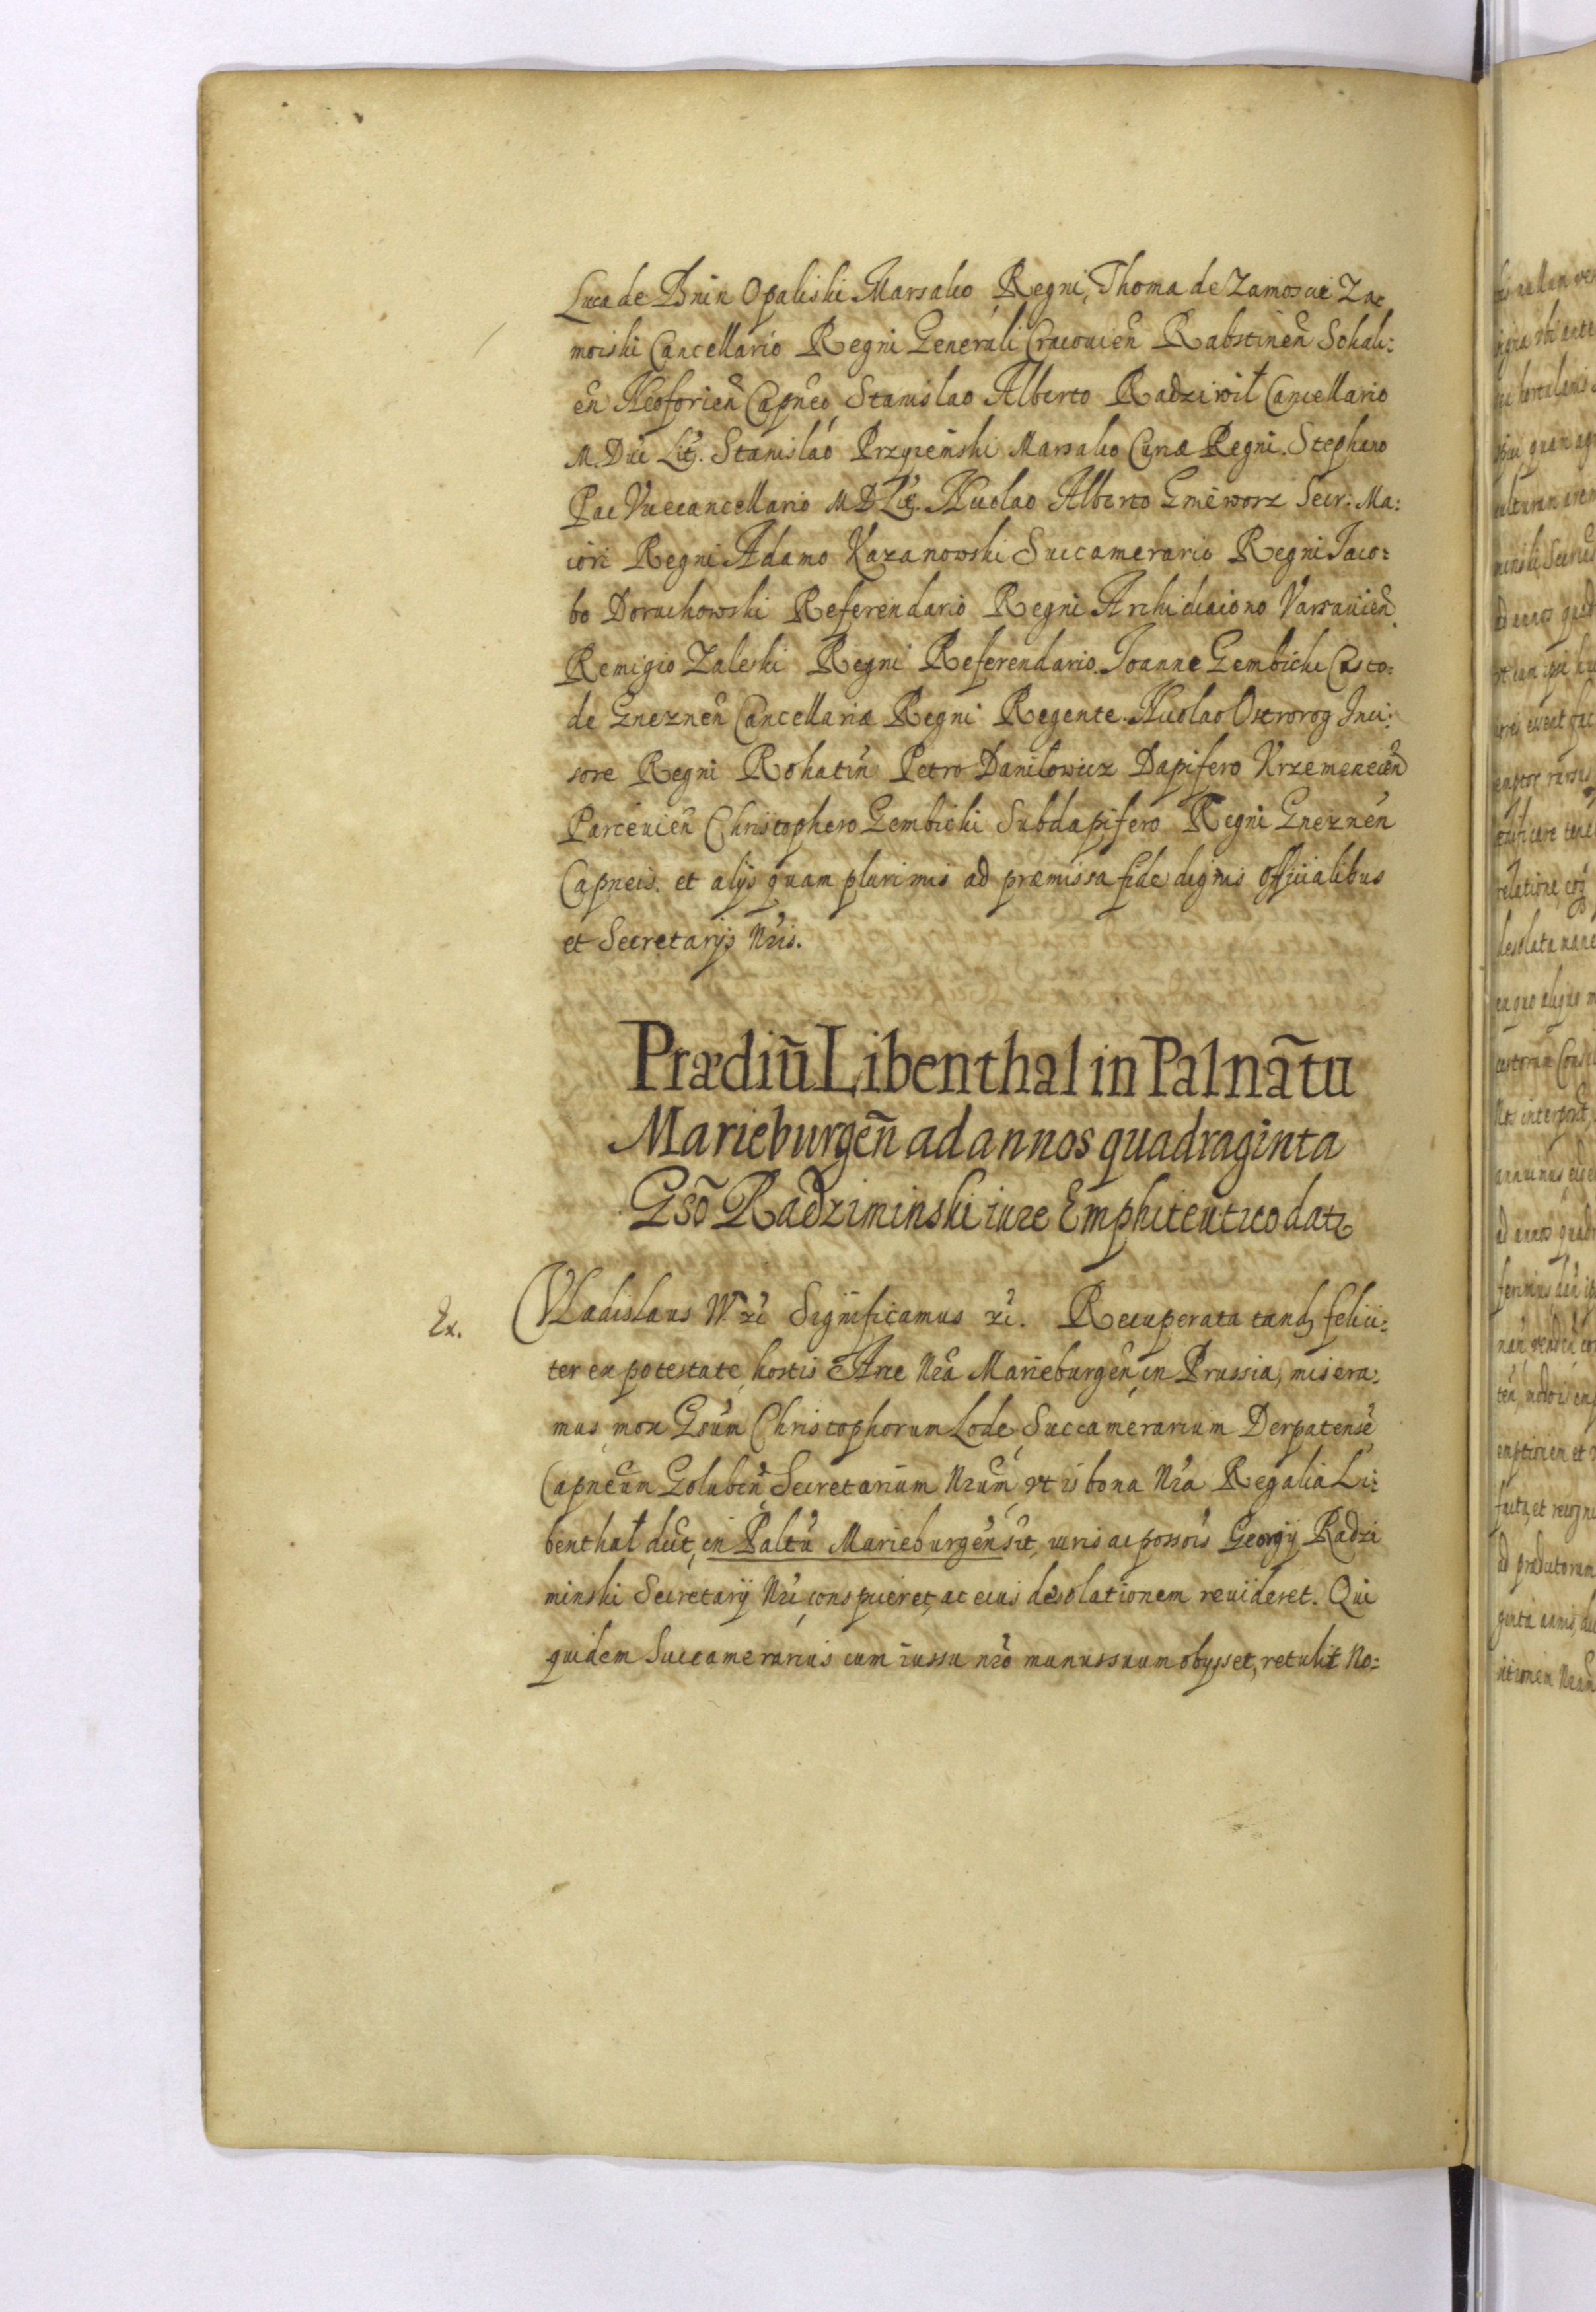 Luca de Bnin Opaliski Marsalco Regni, Thoma de Zamoscie Za
moiski Cancellario Regni Generali Cracovien̄ Rabstinen̄ Sokali:
en̄ Neoforien̄ Capneo, Stanislao Alberto Radziwił Cancellario
M. Duc Lit. Stanislao Przyiemski Marsalco Curiæ Regni. Stephano
Pac Vicecancellario M D Lit. Nicolao Alberto Gniewosz Secr: Ma:
iori Regni Adamo Kazanowski Succamerario Regni Iaco:
bo Doruchowski Referendario Regni Archidiacono Varsavien̄.
Remigio Zaleski Regni Referendario. Ioanne Gembicki Custo:
de Gneznen̄ Cancellariæ Regni Regente. Nicolao Ostrorog Inci:
sore Regni Rohatin̄ Petro Danilowicz Dapifero Krzemenecen̄
Parcevien̄ Christophero Gembicki Subdapifero Regni Gneznen̄
Capneis. et alijs quam plurimis ad præmissa fide dignis Officialibus
et Secretarijs Nr̄is.
Prædiū Libenthal in Palnātu
Marieburgen̄ ad annos quadraginta
Gsō Radziminski iure Emphiteutico datr
Ex.
Vladislaus IV. rc̄ Significamus rc̄. Recuperata tandꝫ felici:
ter ex potestate hostis Arce Nr̄a Marieburgen̄, in Prussia, misera:
mus mox Gsūm Christophorum Lode Succamerarium Derpatensē
Capneūm Goluben̄ Secretarium Nr̄um, vt is bona Nr̄a Regalia Li:
benthal dict, in Paltū Marieburgen̄ sit, iuris ac possōis Georgij Radzi
minski Secretarij Nr̄i conspiceret, ac eius desolationem reuideret. Qui
quidem Succamerarius cum iussu nr̄o munus suum obijsset, retulit No: